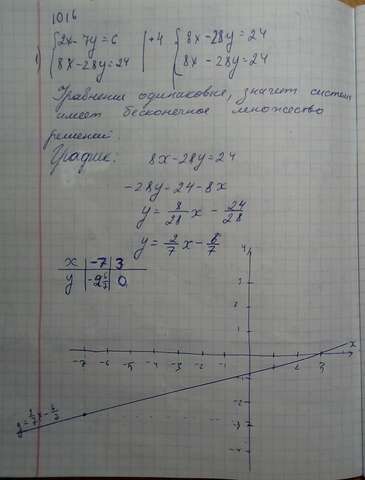 1016
1) {2x-7y=6 |·4 {8x-28y=24
{8x-28y=24 {8x-28y=24
Уравнения одинаковые, значит система
имеет бесконечное множество
решений.
График: 8x-28y=24
-28y=24-8x
y = 8/28 x - 24/28
y = 2/7 x - 6/7
x | -7 | 3
y | -2 6/7 | 0
y
3
2
1
x
-7 -6 -5 -4 -3 -2 -1 1 2 3
-1
-2
-3
-4
y = 2/7 x - 6/7